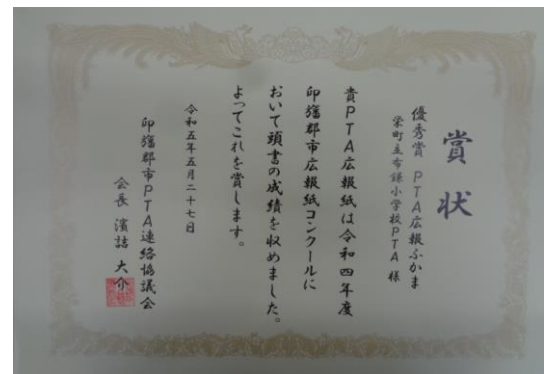 賞状
優秀賞 PTA広報ふかま
栄町立布鎌小学校PTA 様
貴PTA広報紙は令和四年度
印旛郡市広報紙コンクールに
おいて頭書の成績を収めました。
よってこれを賞します。
令和五年五月二十七日
印旛郡市PTA連絡協議会
会長 濱詰 大介